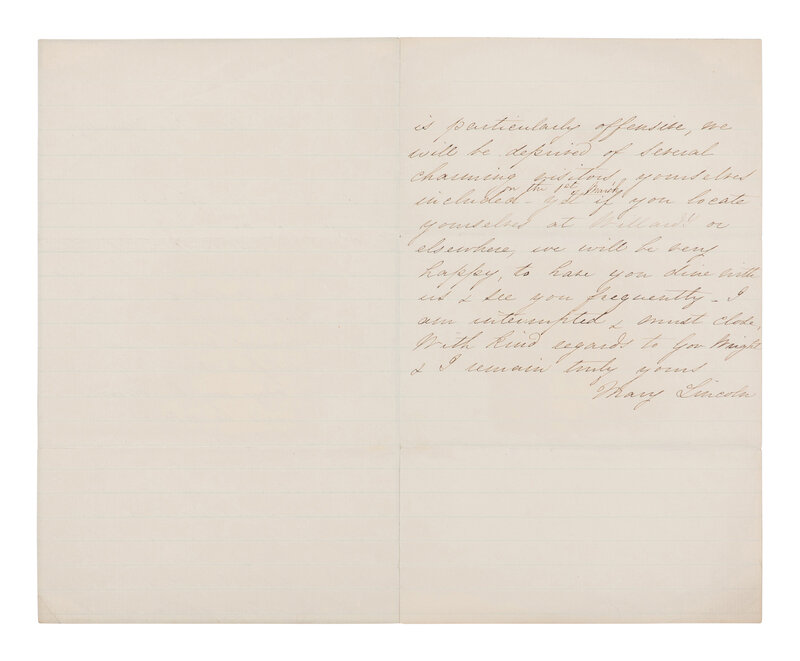 is particularly offensive, we
will be deprived of several
charming visitors, yourselves
on the 1st March
included - Yet if you locate
yourselves at Willard's or
elsewhere, we will be very
happy, to have you dine with
us & see you frequently - I
am interrupted & must close,
With kind regards to Gov Wright
& I remain truly yours
Mary Lincoln